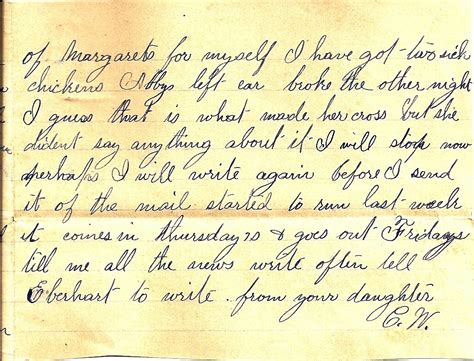 of Margarets for myself I have got two sick
chickens Abbys left ear broke the other night
I guess that is what made her cross but she
dident say anything about it I will stop now
perhaps I will write again before I send
it of the mail started to run last week
it comes in Thursdays & goes out Fridays
till me all the news write often tell
Eberhart to write. from your daughter
C. W.